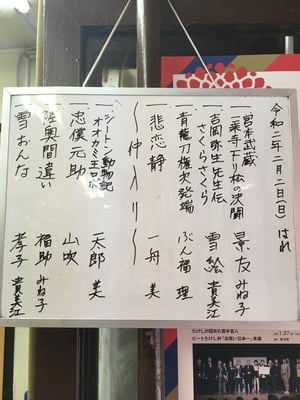 令和二年二月二日(日) はれ
一 宮本武蔵
一乗寺下り松の決闘 景友 みね子
一 吉岡弥生先生伝
さくらさくら 雪絵 貴美江
一 青龍刀権次 発端 ぶん福 理
一 悲恋静 一舟 美
〜仲入り〜
一 シートン動物記
オオカミ王ロボ 一太郎 美
一 忠僕元助 山吹
一 陸奥間違い 福助 みね子
一 雪おんな 孝子 貴美江
たけしが認めた若手芸人
ビートたけし杯「お笑い日本一」本選
1.27